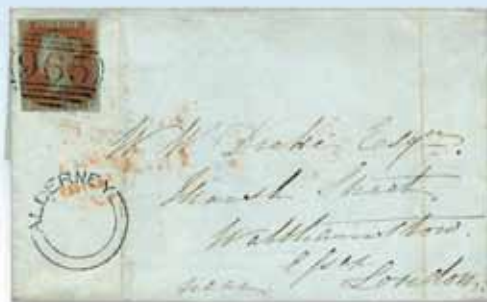 965
ALDERNEY
W W Drake Esqre.
Marsh Street
Walthamstow.
Essex
London.